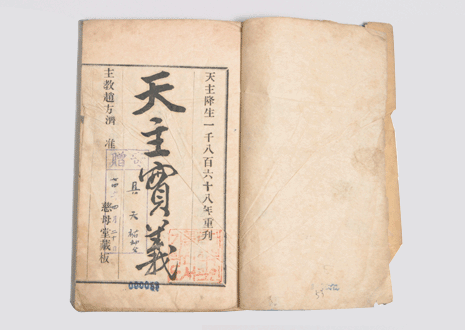 天主降生一千八百六十八年重刊
天主實義
主教趙方濟 准
慈母堂藏板
贈
000068